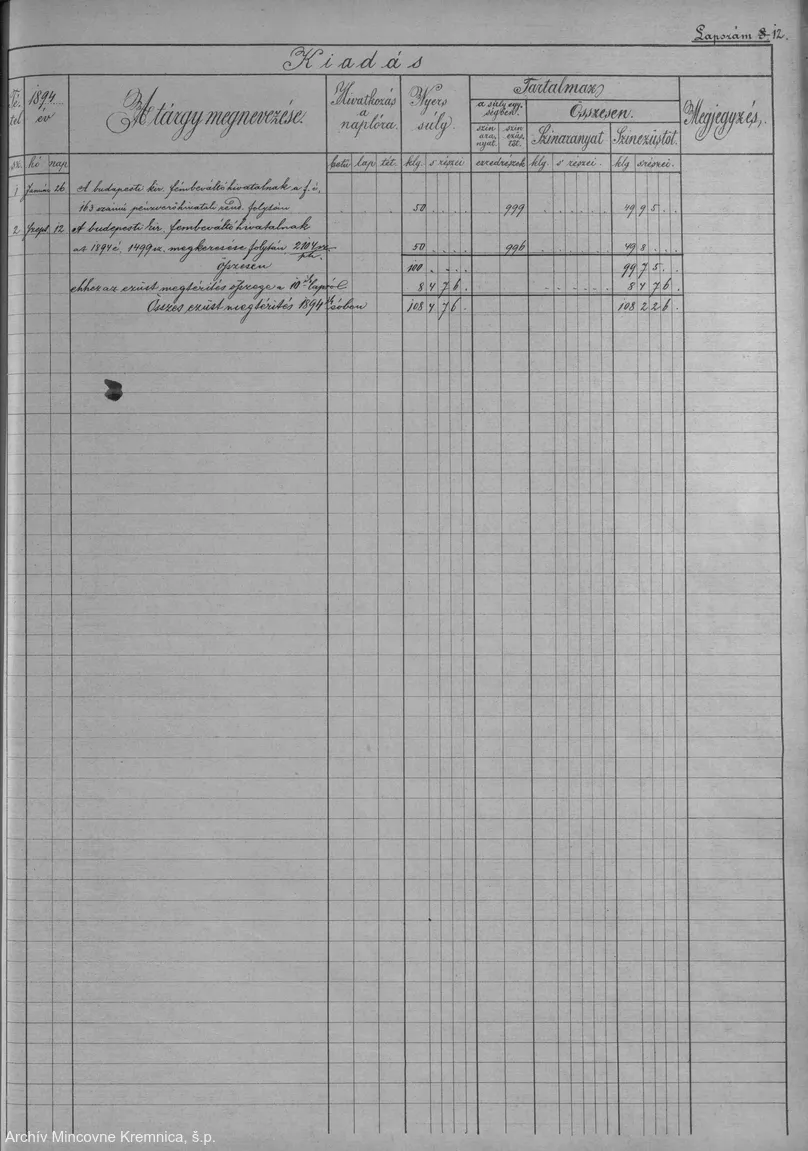 Lapszám 8 12.
Kiadás
Té-
tel
sz.
1894
év
hó nap
A tárgy megnevezése.
Hivatkozás
a
naplóra.
betü lap tét.
Nyers
súly.
klg. s részei
Tartalmaz
a súlyegy-
ségben.
Összesen.
szin
ara-
nyat.
szin
ezüs-
töt.
ezredrészek
Szinaranyat
klg. s részei.
Szinezüstöt.
klg srészei.
Megjegyzés.
1 Január 26 A budapesti kir. fémbeváltó hivatalnak a f. é.
163 számú pénzverőhivatali rend. folytán 50 . . . . 999 . . . . . 49 9 5 . .
2 Szept. 12 A budapesti kir. fémbeváltó hivatalnak
az 1894 é. 1499 sz. megkeresése folytán 2104 sz. 50 . . . . 996 . . . . . 49 8 . . .
Összesen 100 . . . . 99 7 5 . .
ehhez az ezüst megtérités összege a 10ik lapról 8 4 7 6 . . . . . . 8 4 7 6 .
Összes ezüst megtérités 1894ik évben 108 4 7 6 . 108 2 2 6 .
Archív Mincovne Kremnica, š.p.